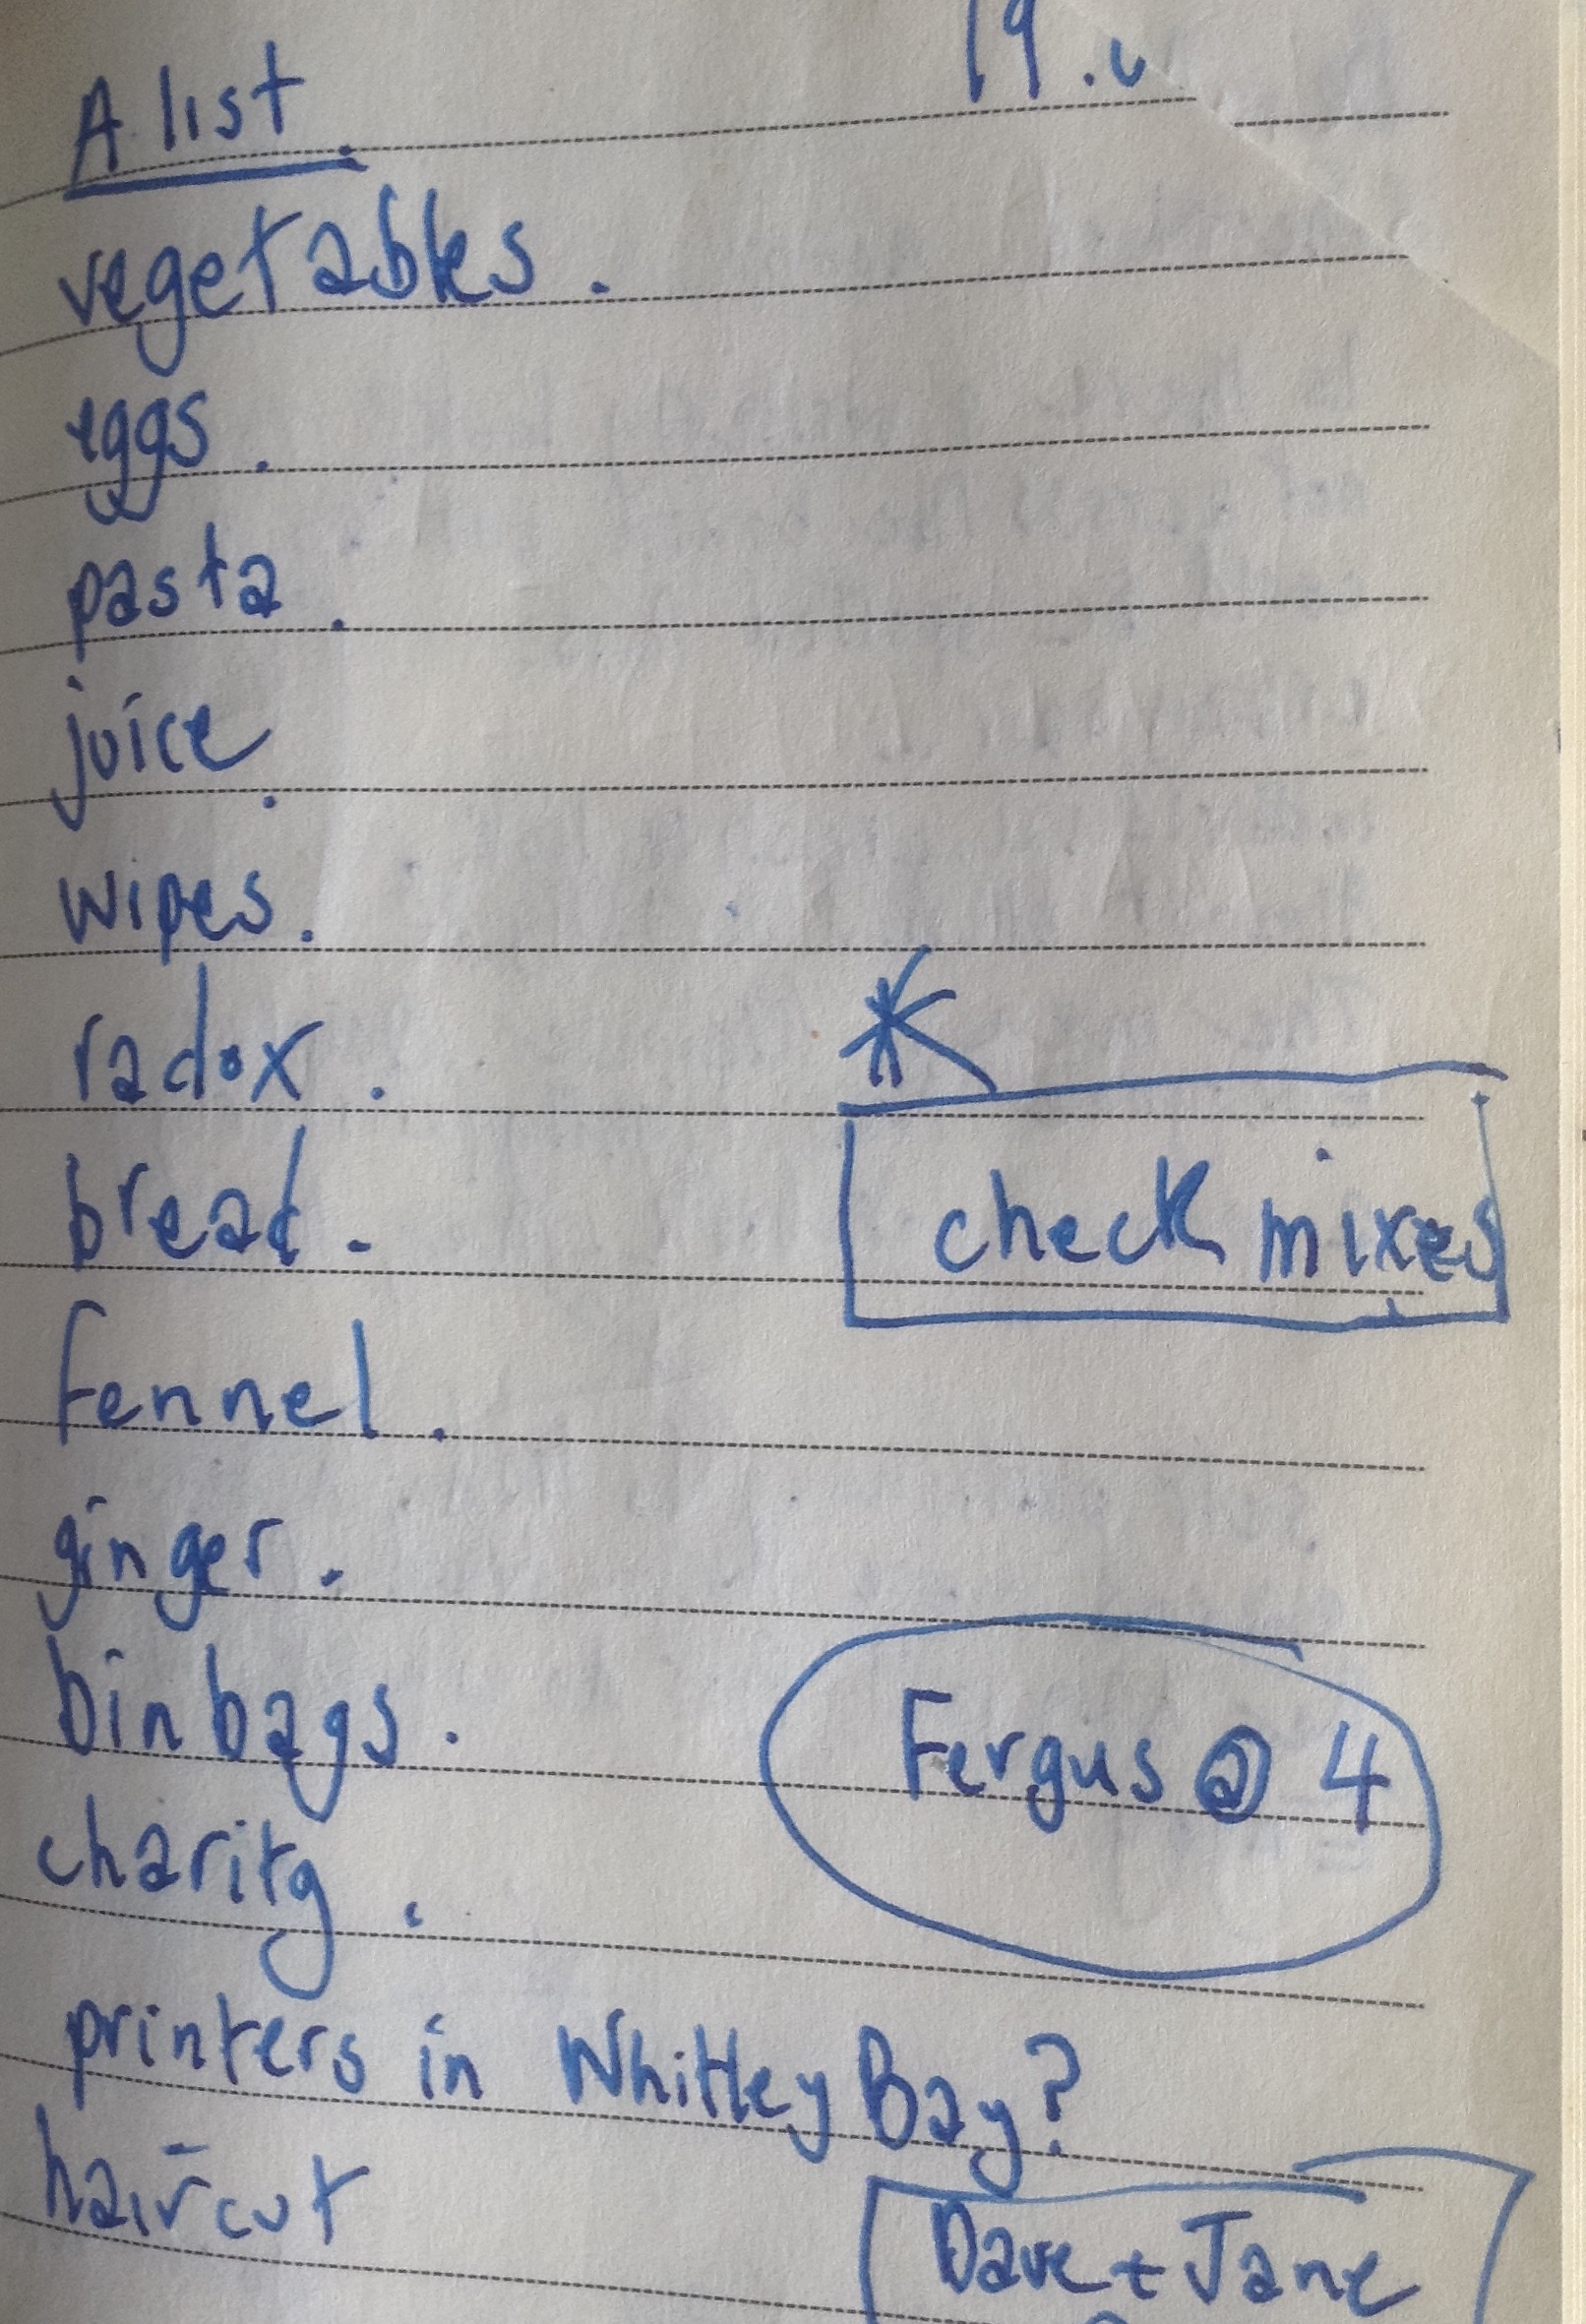 A list.
19.
vegetables.
eggs.
pasta.
juice.
wipes.
radox.
*
bread.
check mixes
fennel.
ginger.
bin bags.
Fergus @ 4
charity.
printers in Whitley Bay?
haircut
Dave + Jane